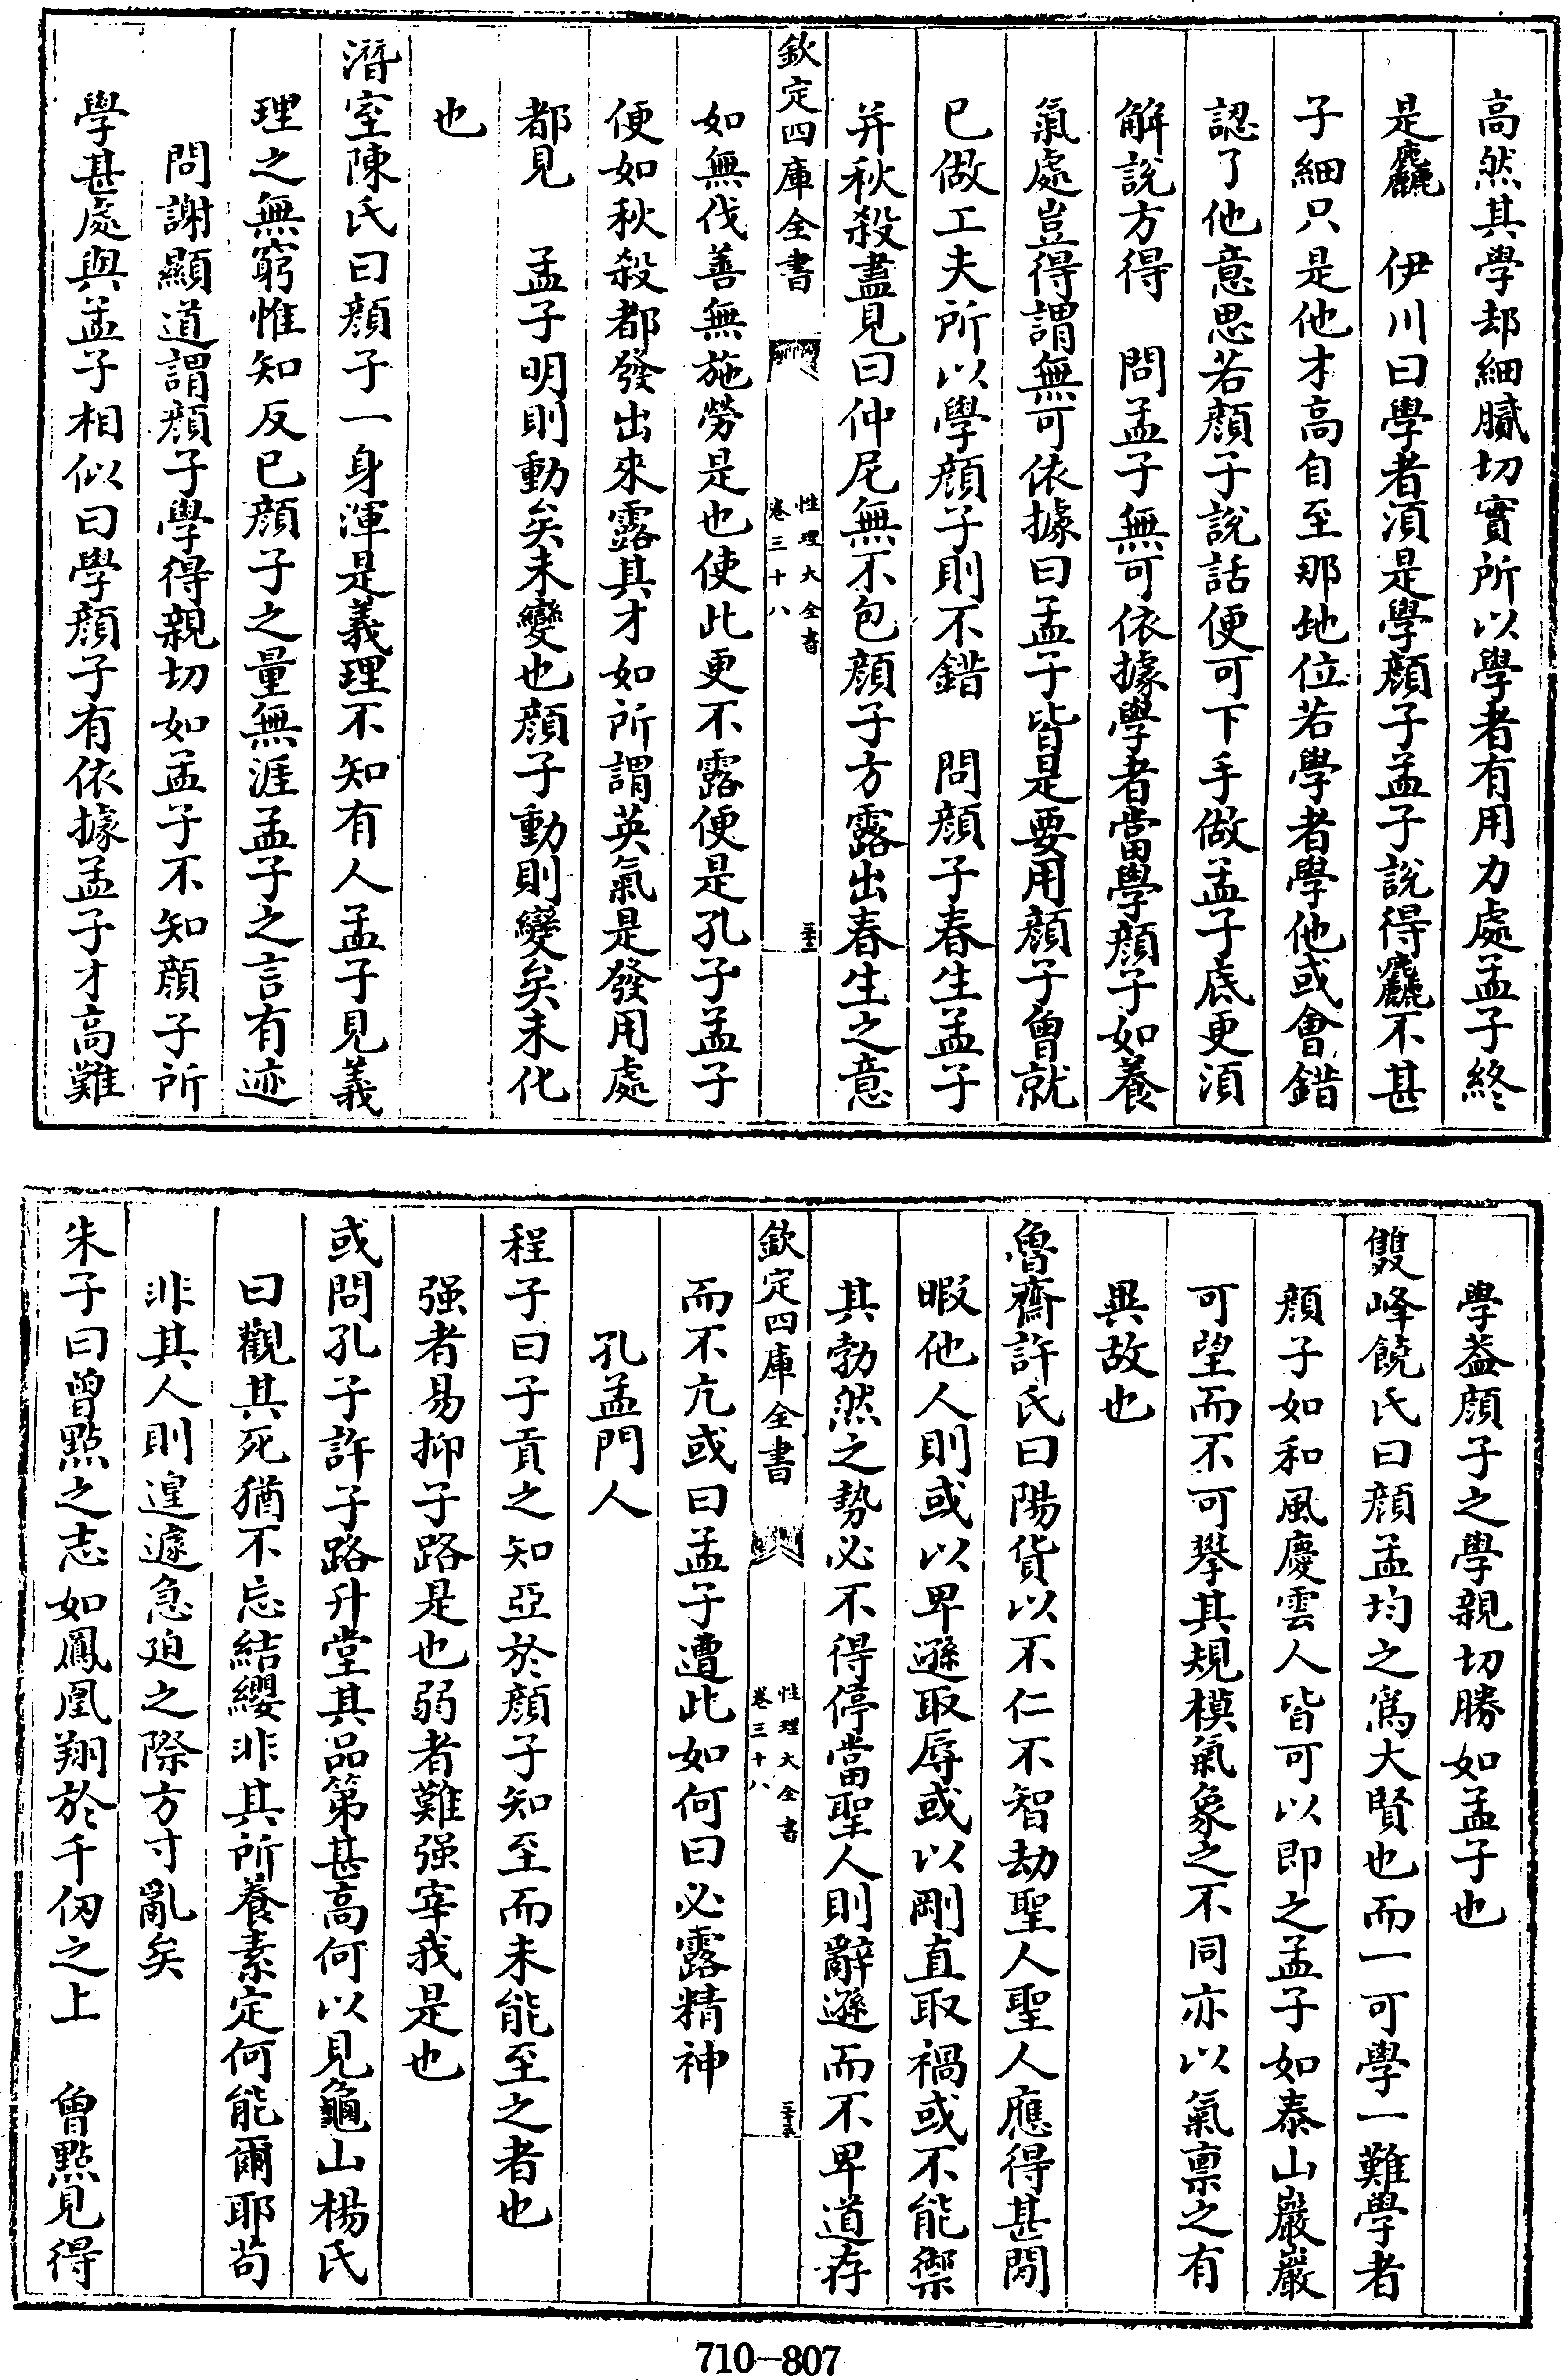 高然其學却細膩切實所以學者有用力處孟子終
是麤　伊川曰學者須是學顔子孟子說得麤不甚
子細只是他才高自至那地位若學者學他或會錯
認了他意思若顔子說話便可下手做孟子底更須
解說方得　問孟子無可依據學者當學顔子如養
氣處豈得謂無可依據曰孟子皆是要用顔子曾就
已做工夫所以學顔子則不錯　問顔子春生孟子
并秋殺盡見曰仲尼無不包顔子方露出春生之意
欽定四庫全書　性理大全書　卷三十八
如無伐善無施勞是也使此更不露便是孔子孟子
便如秋殺都發出來露其才如所謂英氣是發用處
都見　孟子明則動矣未變也顔子動則變矣未化
也
潛室陳氏曰顔子一身渾是義理不知有人孟子見義
理之無窮惟知反已顔子之量無涯孟子之言有迹
問謝顯道謂顔子學得親切如孟子不知顔子所
學甚處與孟子相似曰學顔子有依據孟子才高難
學葢顔子之學親切勝如孟子也
雙峰饒氏曰顔孟均之爲大賢也而一可學一難學者
顔子如和風慶雲人皆可以即之孟子如泰山巖巖
可望而不可攀其規模氣象之不同亦以氣禀之有
異故也
魯齋許氏曰陽貨以不仁不智劫聖人聖人應得甚閒
暇他人則或以卑遜取辱或以剛直取禍或不能禦
其勃然之勢必不得停當聖人則辭遜而不卑道存
欽定四庫全書　性理大全書　卷三十八　三十五
而不亢或曰孟子遭此如何曰必露精神
孔孟門人
程子曰子貢之知亞於顔子知至而未能至之者也
强者易抑子路是也弱者難强宰我是也
或問孔子許子路升堂其品第甚高何以見龜山楊氏
曰觀其死猶不忘結纓非其所養素定何能爾耶苟
非其人則遑遽急廹之際方寸亂矣
朱子曰曾點之志如鳳凰翔於千仞之上　曾點見得
710-807